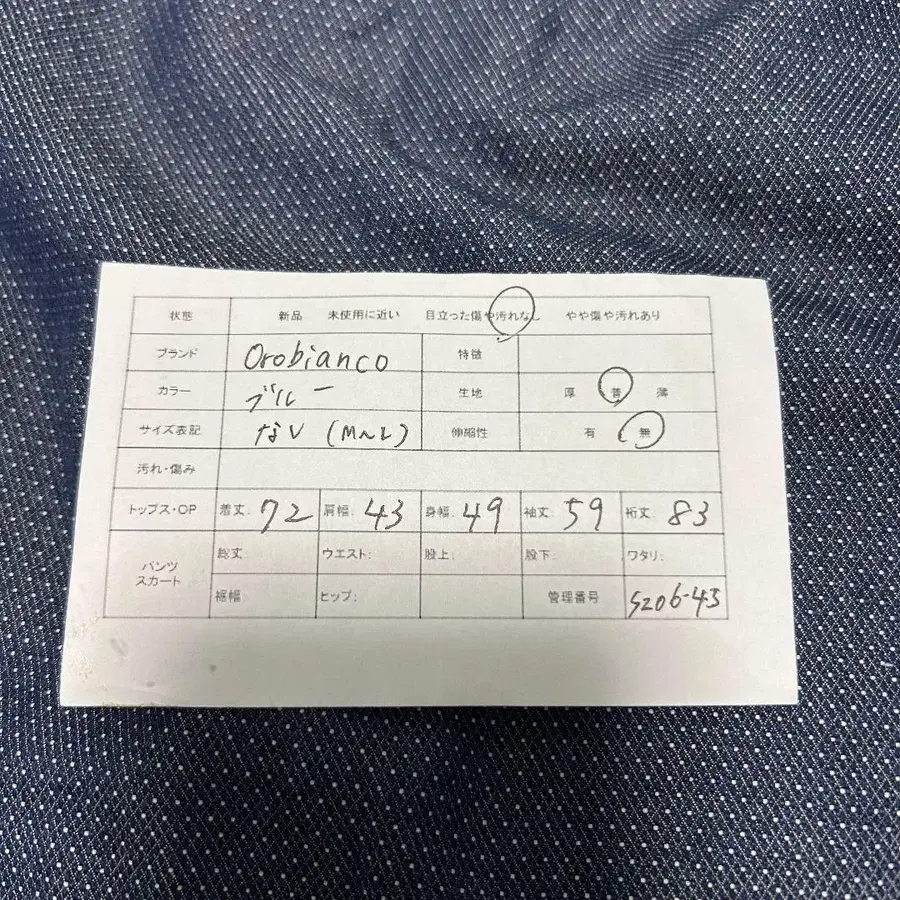 状態 新品 未使用に近い 目立った傷や汚れなし やや傷や汚れあり
ブランド Orobianco 特徴
カラー ブルー 生地 厚 普 薄
サイズ表記 なし (M~L) 伸縮性 有 無
汚れ・傷み
トップス・OP 着丈: 72 肩幅: 43 身幅: 49 袖丈: 59 裄丈: 83
パンツ スカート 総丈: ウエスト: 股上: 股下: ワタリ:
裾幅: ヒップ: 管理番号 S206-43